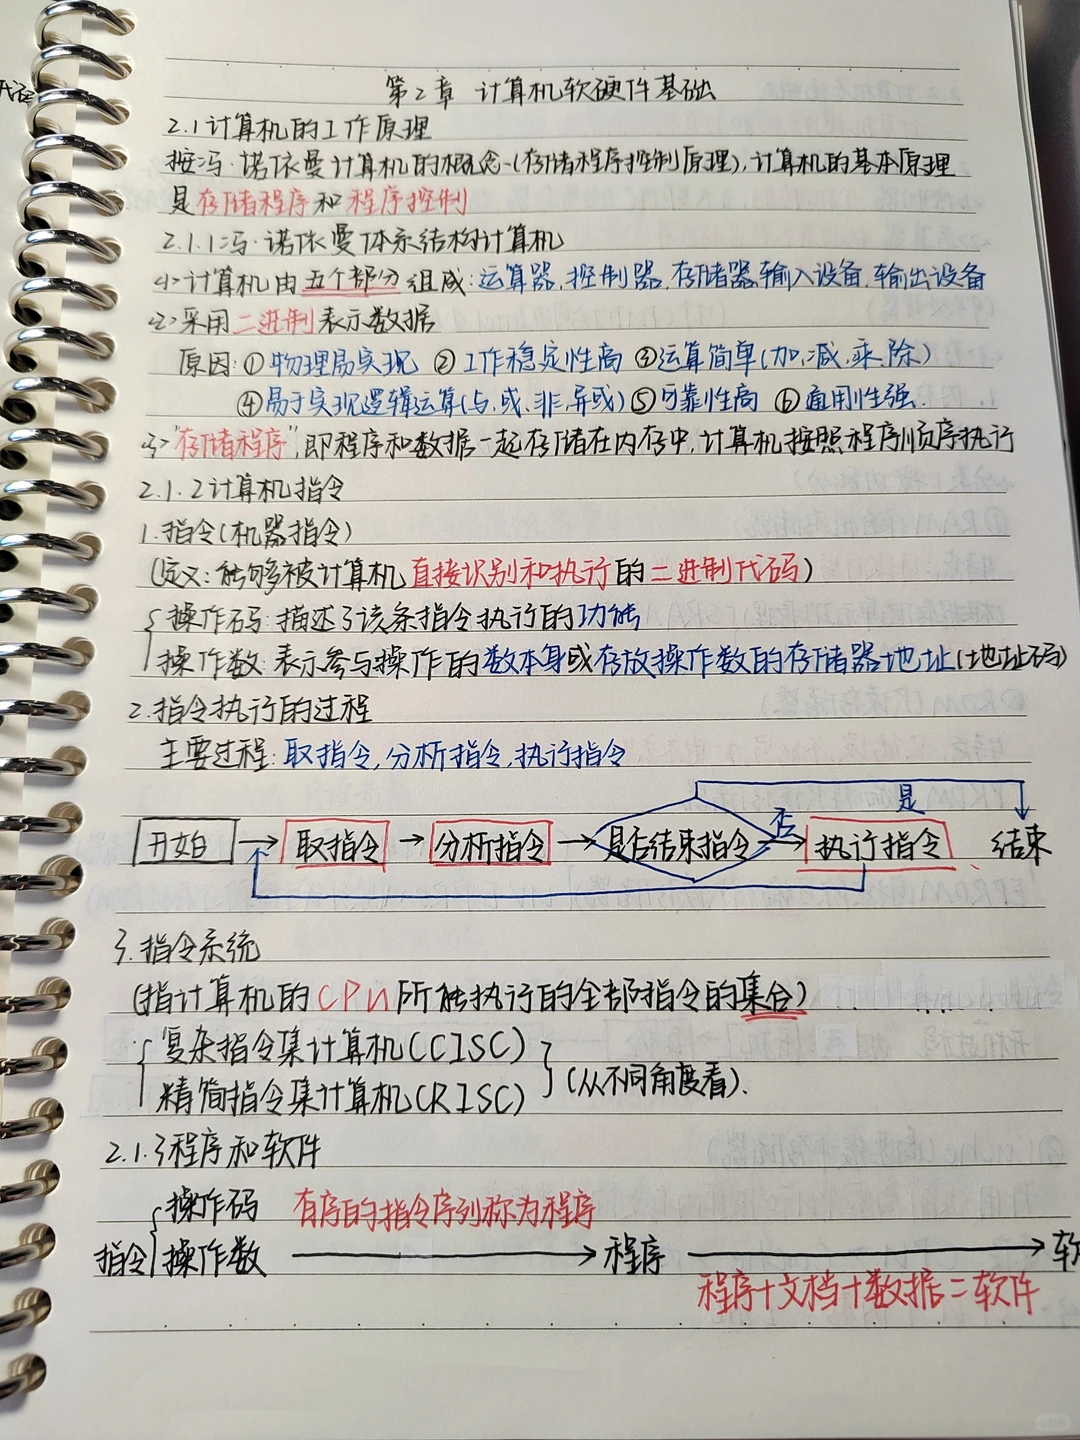 第2章 计算机软硬件基础
2.1计算机的工作原理
按冯·诺依曼计算机的概念(存储程序控制原理),计算机的基本原理
是存储程序和程序控制
2.1.1冯·诺依曼体系结构计算机
<1>计算机由五个部分组成:运算器,控制器,存储器,输入设备,输出设备
<2>采用二进制表示数据
原因:①物理易实现 ②工作稳定性高 ③运算简单(加,减,乘,除)
④易于实现逻辑运算(与,或,非,异或)⑤可靠性高 ⑥通用性强.
<3>"存储程序",即程序和数据一起存储在内存中,计算机按照程序顺序执行
2.1.2计算机指令
1.指令(机器指令)
(定义:能够被计算机直接识别和执行的二进制代码)
操作码:描述了该条指令执行的功能
操作数:表示参与操作的数本身或存放操作数的存储器地址(地址码)
2.指令执行的过程
主要过程:取指令,分析指令,执行指令
是
开始 → 取指令 → 分析指令 → 是否结束指令 否 → 执行指令 结束
3.指令系统
(指计算机的CPU所能执行的全部指令的集合)
复杂指令集计算机(CCISC)
精简指令集计算机(CRISC)
(从不同角度看).
2.1.3程序和软件
操作码 有序的指令序列称为程序
指令 操作数 → 程序 → 软
程序+文档+数据=软件